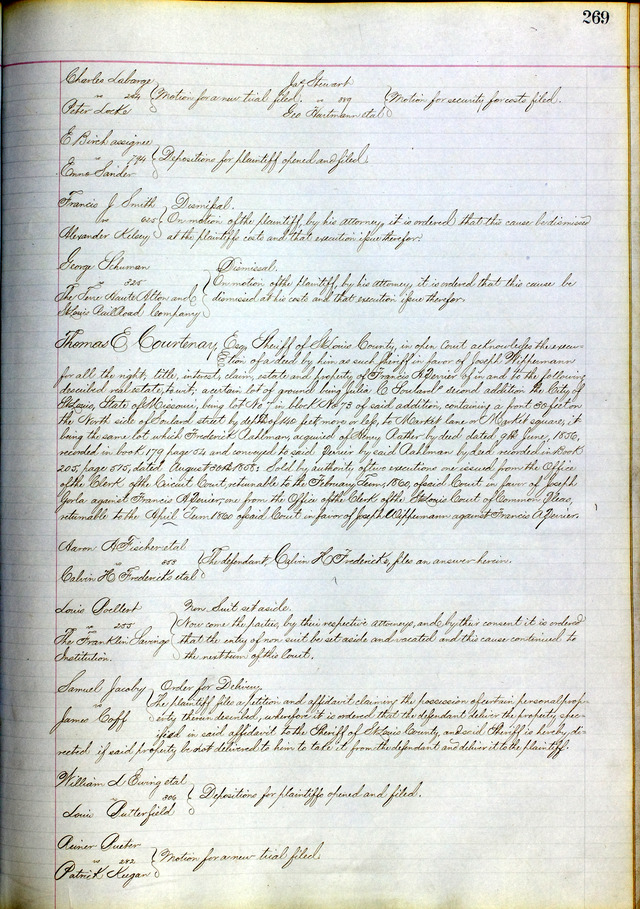 269
Charles Labarge
vs 294 Motion for a new trial filed.
Peter Locke
Jas Stewart
vs 389 Motion for security for costs filed.
Geo Hartmann etal
E Birch assignee
vs 794 Depositions for plaintiff opened and filed.
Enno Sander
Francis J Smith Dismissal.
vs 625 On motion of the plaintiff by his attorney, it is ordered, that this cause be dismissed
Alexander Kelsey at the plaintiffs costs and that execution issue therefor.
George Schuman Dismissal.
vs 325 On motion of the plaintiff, by his attorney, it is ordered that this cause be
The Terre Haute Alton and dismissed at his costs and that execution issue therefor.
St Louis Rail Road Company
Thomas E Courtenay Esq, Sheriff of St Louis County, in open Court acknowledges the execu-
tion of a deed by him as such Sheriff in favor of Joseph Wippermann
for all the right, title, interest, claim, estate and property of Francis A Qurier of in and to the following
described real estate, to wit; a certain lot of ground being Julia C Soulard' second addition the City of
St Louis, State of Missouri, being lot No 7 in block No 73 of said addition, containing a front 30 feet on
the North side of Soulard street by depth of 140 feet more or less, to Market lane or Market square, it
being the same lot which Frederick Aahlman, acquired of Henry Rather by deed dated 9th June, 1856,
recorded in book 179 page 54 and conveyed to said by said Aahlman by deed recorded in Book
205, page 575, dated August 30th 1858: Sold by authority of two executions one issued from the Office
of the Clerk of the Circuit Court, returnable to the February Term, 1860, of said Court in favor of Joseph
Gorla against Francis A one from the Office of the Clerk of the St Louis Court of Common Pleas,
returnable to the April Term 1860 of said Court in favor of Joseph Wippermann against Francis A
Aaron A Fischer etal
vs 853 The defendant, Calvin H Fredericks, files an answer herein.
Calvin H Fredericks etal
Louis Doellert Non Suit set aside.
vs 255 Now come the parties, by their respective attorneys, and by their consent it is ordered
The Franklin Savings that the entry of non suit be set aside and vacated and this cause continued to
Institution. the next term of this Court.
Samuel Jacoby Order for Delivery.
vs The plaintiff files a petition and affidavit claiming the possession of certain personal prop-
James Goff erty therein described, wherefore it is ordered that the defendant deliver the property spec-
ified in said affidavit to the Sheriff of St Louis County, and said Sheriff is hereby di-
rected if said property be not delivered to him to take it from the defendant and deliver it to the plaintiff
William L Ewing etal
vs 306 Depositions for plaintiffs opened and filed.
Louis Butterfield
vs 282 Motion for a new trial filed
Patrick Keegan